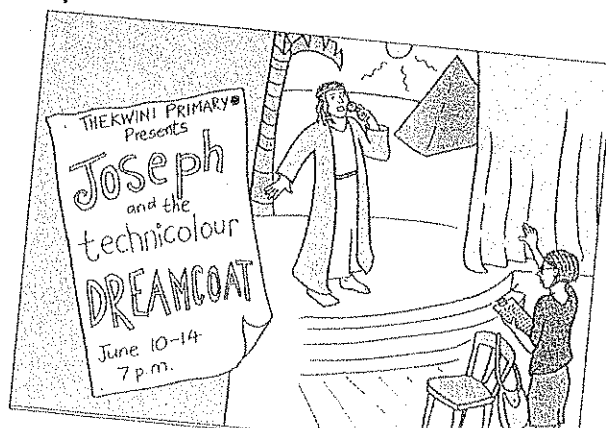 THEKWINI PRIMARY
Presents
Joseph
and the
technicolour
DREAMCOAT
June 10-14
7 p.m.